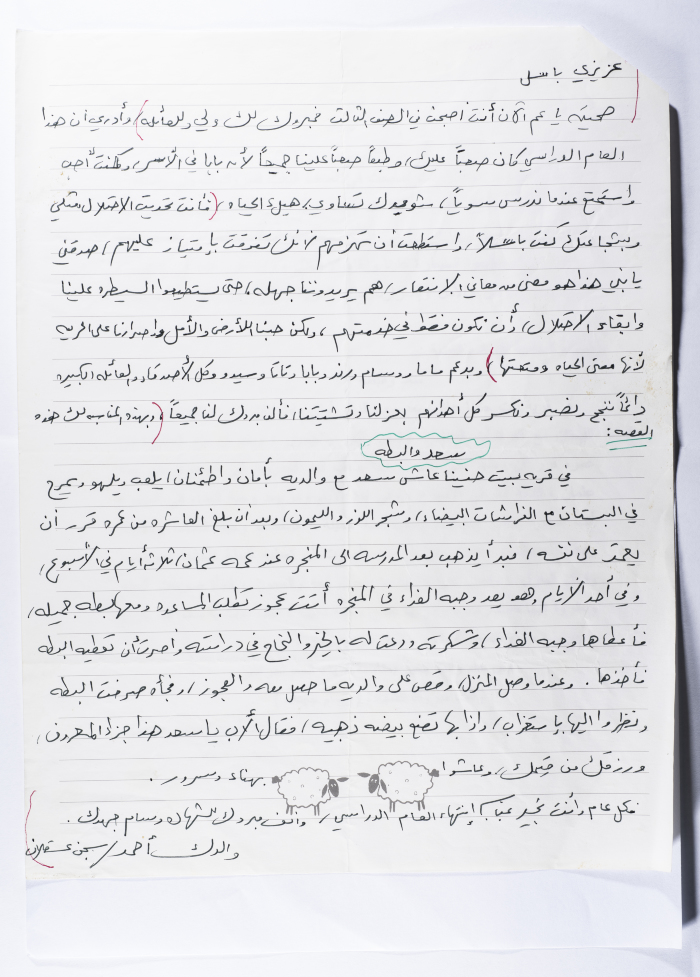 عزيزي باسل
صحيح يا عم الآن أنت أصبحت في الصف الثالث فمبروك لك ولي وللعائلة، وأدري أن هذا
العام الدراسي كان صعباً عليك، وطبعاً صعباً علينا جميعاً لأنه بابا في الأسر، ولكنت أحب
واستمتع عندما ندرس سوياً، هيك الحياه، فأنت تحديت الاحتلال مثلي
وبشجاعتك كنت باسلاً، واستطعت أن تهزمهم لأنك تفوقت بإمتياز عليهم، صدقني
يا بني هذا هو معنى من معاني الإنتصار، هم يريدوننا جهله، حتى يستطيعوا السيطره علينا
وابقاء الاحتلال، وأن نكون فقط في خدمتهم، ولكن حبنا للأرض والأمل وإصرارنا على الحريه
لأنها معنى الحياه ومتعتها، وبدعم ماما ووسام ورند وبابا وتاتا وسيدو وكل الأصدقاء والعائله الكبيره
دائماً ننجح ونصبر ونكسر كل أهدافهم بعزلنا وتشتيتنا، فألف مبروك لنا جميعاً، وبهذه المناسبه لك هذه
القصه:
سعد والبطه
في قريه بيت حنينا عاش سعد مع والديه بأمان واطمئنان، يلعب ويلهو ويمرح
في البستان مع الفراشات البيضاء، وشجر اللوز والليمون، وبعد أن بلغ العاشره من عمره قرر أن
يعتمد على نفسه، فبدأ يذهب بعد المدرسه الى المنجره عند عمه عثمان، ثلاثة أيام في الأسبوع،
وفي أحد الأيام وهو يعد وجبه الغداء في المنجره أتت عجوز تطلب المساعده ومعها بطه جميله،
فأعطاها وجبه الغداء، وشكرته ودعت له بالخير والنجاح في دراسته وأصرت أن تعطيه البطه
فأخذها. وعندما وصل المنزل، وقص على والديه ما حصل معه والعجوز، وفجأه صرخت البطه
ونظروا اليها بإستغراب، واذا بها تضع بيضه ذهبيه، فقال الأب يا سعد هذا جزاء المعروف،
ورزقك من قيمك، وعاشوا بهناء وسرور.
فكل عام وأنت بخير عُقبال إنتهاء العام الدراسي، وألف مبروك الشهاده وسام جهدك.
والدك أحمد/سجن عسقلان